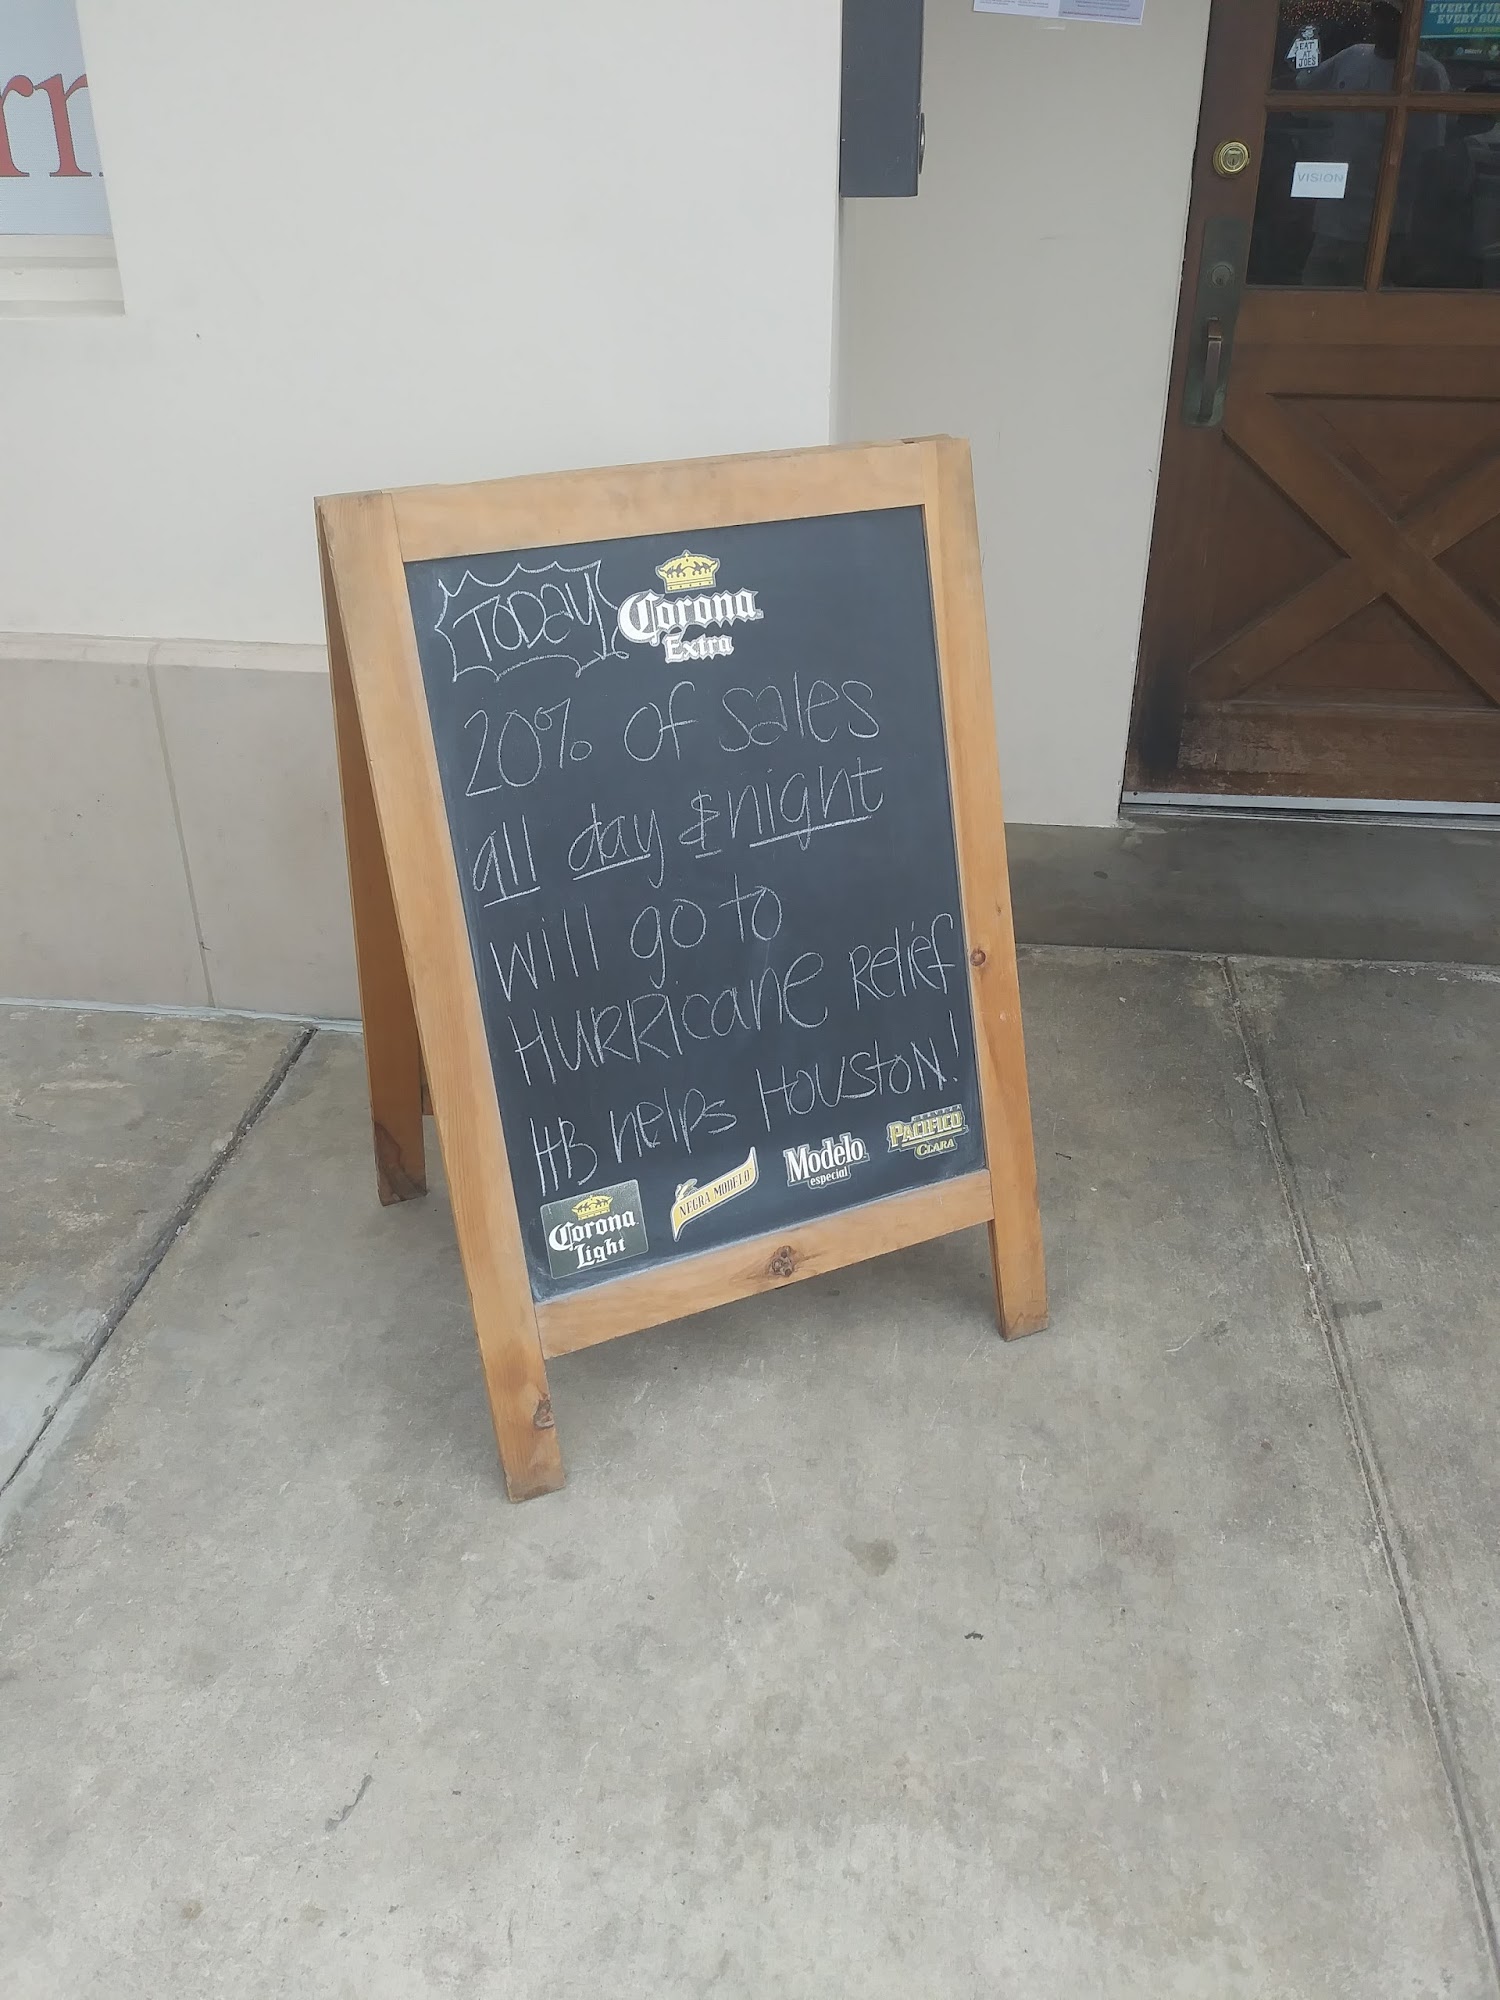 rr
EVERY
EVERY
EAT
AT
JOES
VISION
TODAY
Corona
Extra
20% of sales
all day & night
will go to
HURRicaNE RELIEF
HB HElps HOUSTON!
Corona
Light
NEGRA MODELO
Modelo
especial
CERVEZA
PACIFICO
CLARA